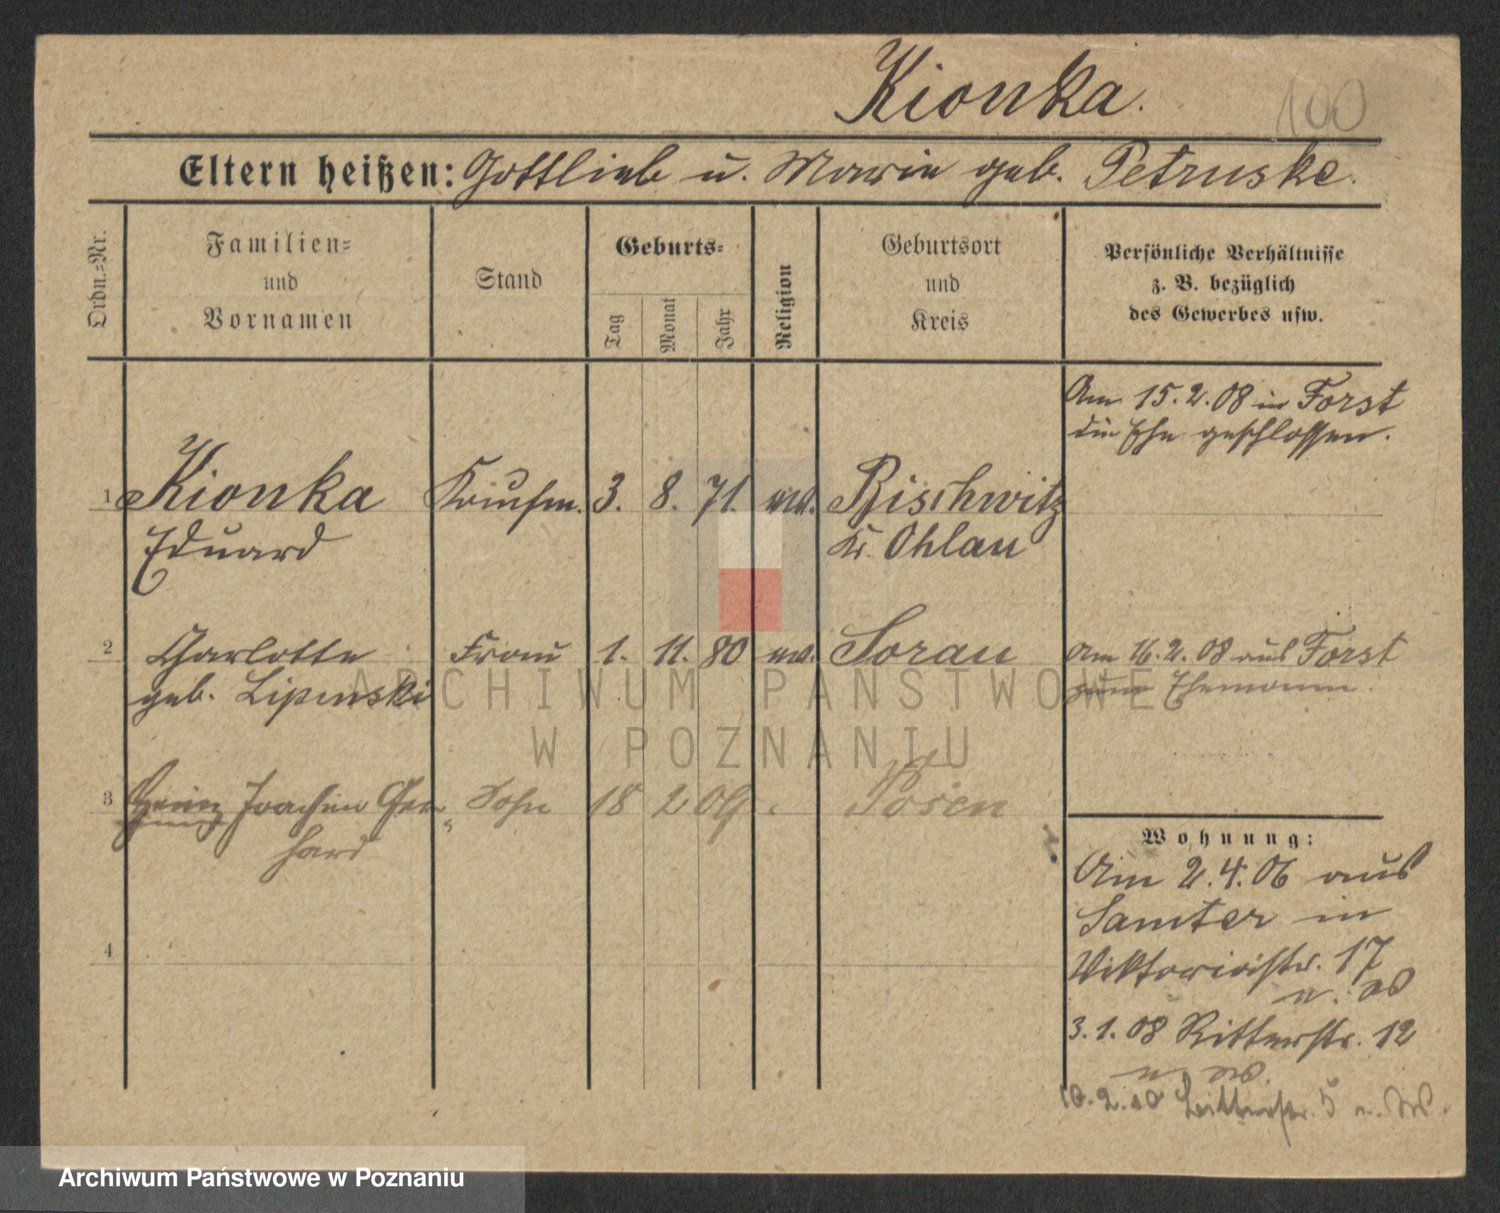 Kionka.
100
Eltern heißen: Gottlieb u. Marie geb. Petruske.
Ordn.=Nr.
Familien=
und
Vornamen
Stand
Geburts=
Tag
Monat
Jahr
Religion
Geburtsort
und
Kreis
Persönliche Verhältnisse
z. B. bezüglich
des Gewerbes usw.
Am 15.2.08 in Forst
die Ehe geschlossen.
1 Kionka Kaufm. 3. 8. 71. ev. Bischwitz
Eduard Kr. Ohlau
2 Charlotte Frau 1. 11. 80 ev. Sorau Am 16.2.08 aus Forst
geb. Lipinski zum Ehemann.
ARCHIWUM PAŃSTWOWE
W POZNANIU
3 Heinz Joachim Ger= Sohn 18 2 09 Posen
hard
Wohnung:
Am 2.4.06 aus
Samter in
Viktoriastr. 17
3.1.08 Ritterstr. 12
10.2.10 5
4
Archiwum Państwowe w Poznaniu